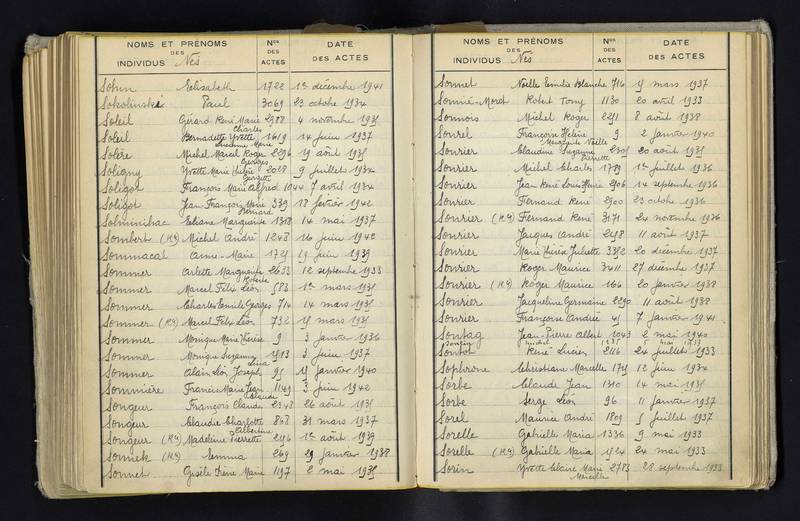 NOMS ET PRÉNOMS
DES
INDIVIDUS Nés
Nos
DES
ACTES
DATE
DES ACTES
Sohin Elisabeth 1722 1er décembre 1941
Sokolinski Paul 3069 23 octobre 1934
Soleil Gérard René Marie 2988 4 novembre
Charles
Soleil Bernadette Yvette 1619 14 juin 1937
Solère Michel Marcel Roger 2296 19 août
Georges
Soligny Yvette Marie 2028 9 juillet
Georgette
Soligot François Marie Alfred 1044 7 avril 1934
Soligot Jean François 339 18 février 1942
Bernard
Solminihac Eliane Marguerite 1318 14 mai 1937
Sombert (R4) Michel André 1248 16 juin 1942
Sommacal Anne-Marie 1725 19 juin 1939
Sommer Arlette Marguerite 2633 12 septembre 1933
Sommer Marcel Felix Léon 583 1er mars
Sommer Charles Emile Georges 714 14 mars
Sommer (R4) Marcel Felix Léon 732 mars
Sommer Monique Marie Thérèse 9 3 janvier 1936
Sommer Monique Suzanne 1513 3 juin 1937
Sommer Alain Léon Joseph 95 janvier 1940
Sommière Francis Marie Jean 1149 3 juin 1942
Claude
Songeur François Claude 2348 26 août
Songeur Claudie Charlotte 868 31 mars 1937
Albertine
Songeur (R4) Madeleine Pierrette 2296 1er août 1939
Sonnek (R4) Emma 269 29 janvier 1938
Sonnet Gisèle Irène Marie 1197 2 mai
NOMS ET PRÉNOMS
DES
INDIVIDUS Nés
Nos
DES
ACTES
DATE
DES ACTES
Sonnet Noëlle Emilie Blanche 716 mars 1937
Sonnié-Moret Robert Tony 1130 20 avril 1933
Sonnois Michel Roger 2251 8 août 1938
Sonrel Françoise Hélène 9 2 janvier 1940
Sonrier Claudine Suzanne 20 août
Pierrette
Sonrier Michel Charles 1789 1er juillet 1936
Sonrier Jean René Louis 2506 14 septembre 1936
Sonrier Fernand René 2900 23 octobre 1936
Sonrier (R4) Fernand René 3171 24 novembre 1936
Sonrier Jacques André 2298 11 août 1937
Sonrier Marie Thérèse Juliette 3352 20 décembre 1937
Sonrier Roger Maurice 3411 27 décembre 1937
Sonrier (R4) Roger Maurice 166 20 janvier 1938
Sonrier Jacqueline Germaine 2290 11 août 1938
Sonrier François André 45 7 janvier 1941
Sontag Jean-Pierre Albert 1043 2 mai 1940
Sontot René Lucien 2116 24 juillet 1933
Sophrone Christiane Marcelle 1725 12 juin 1934
Sorbe Claude Jean 1310 14 mai
Sorbe Serge Léon 96 11 janvier 1937
Sorel Maurice André 1809 5 juillet 1937
Sorelle Gabrielle Maria 1336 9 mai 1933
Sorelle (R4) Gabrielle Maria 1524 24 mai 1933
Sorin Yvette Claire Marie 2783 28 septembre 1933
Marcelle